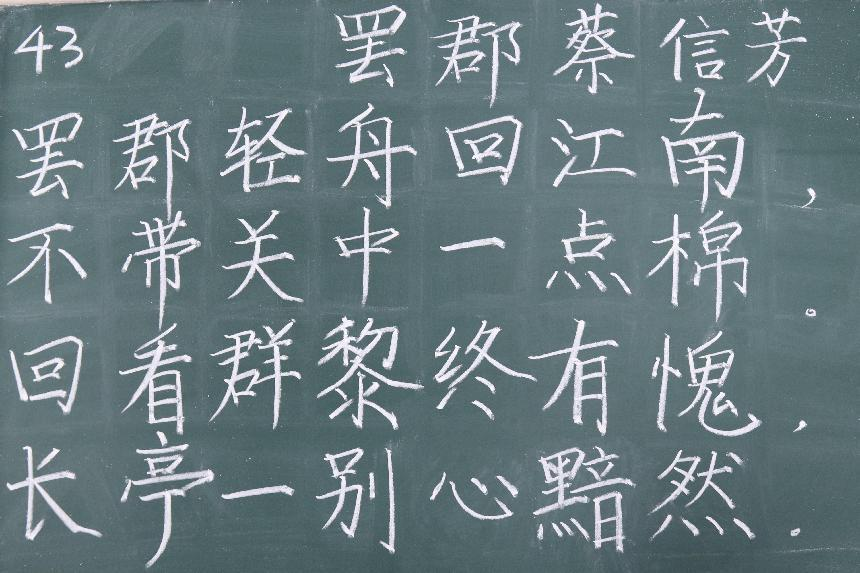 43 罢郡 蔡信芳
罢郡轻舟回江南，
不带关中一点棉。
回看群黎终有愧，
长亭一别心黯然.